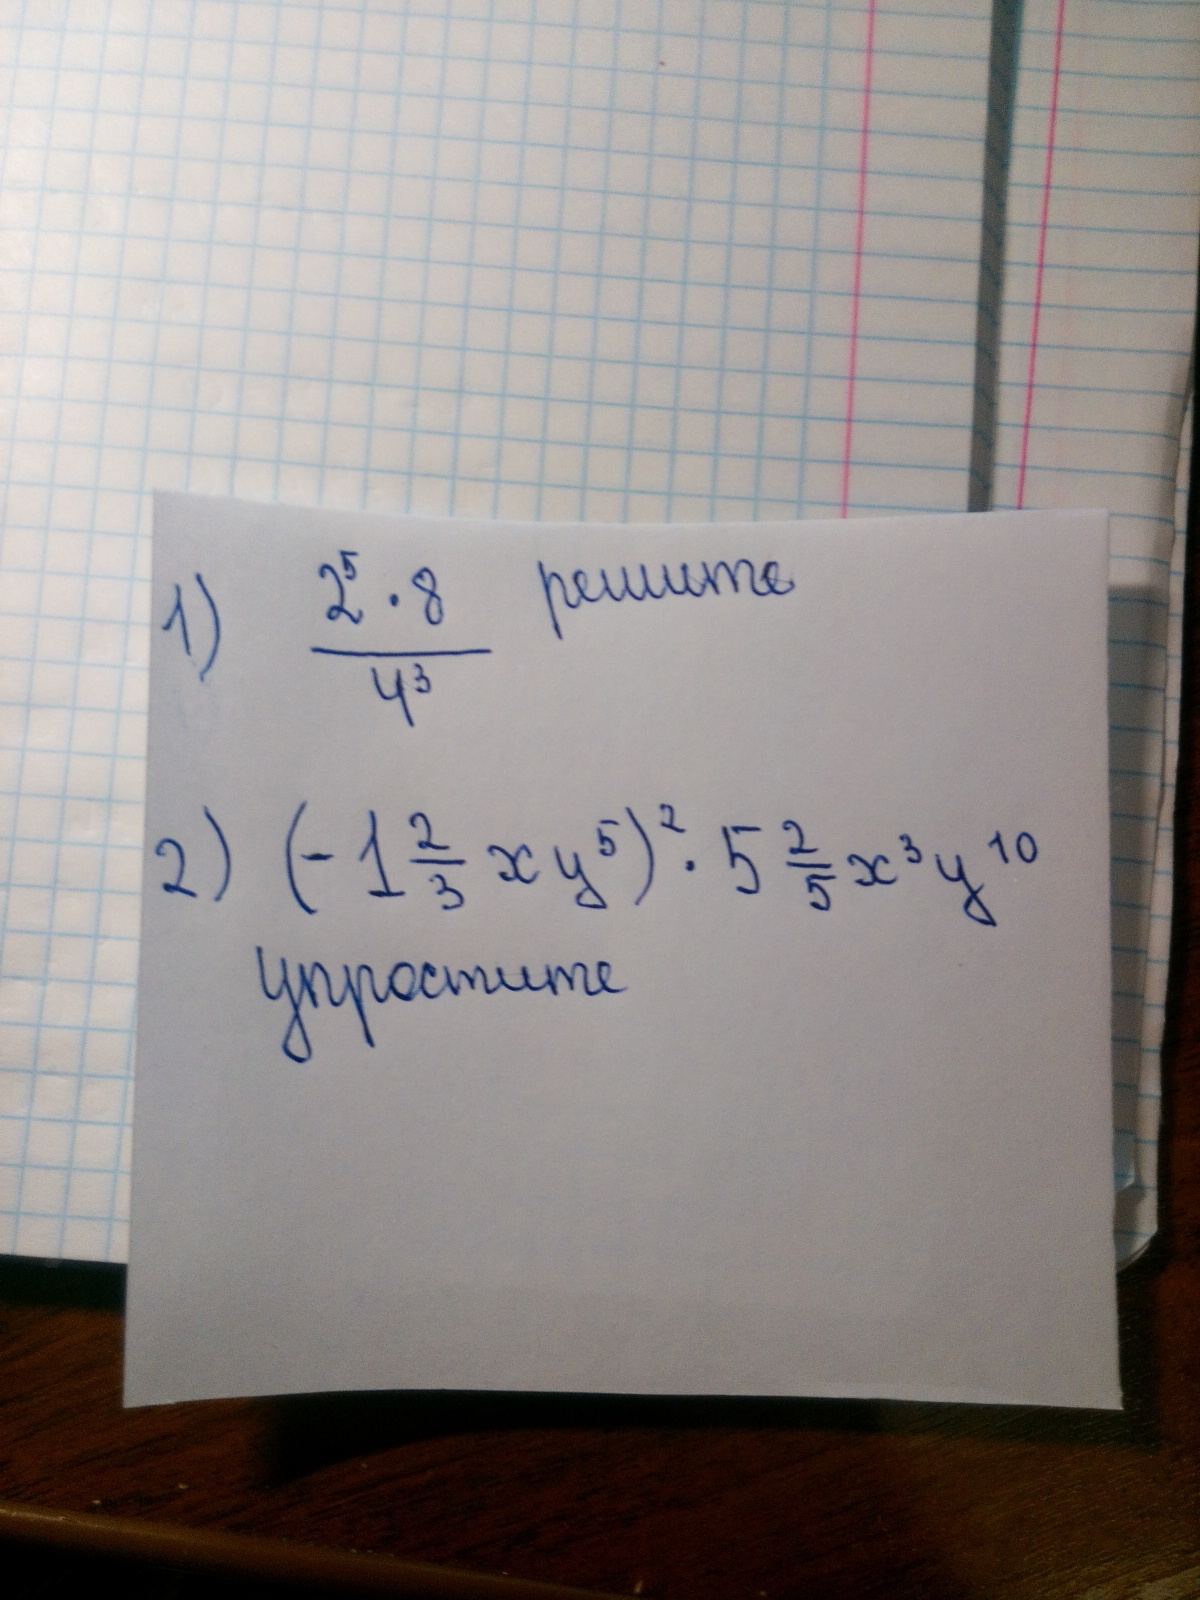 1) 2⁵ · 8 / 4³ решите
2) (-1 2/3 xy⁵)² · 5 2/5 x³y¹⁰
упростите